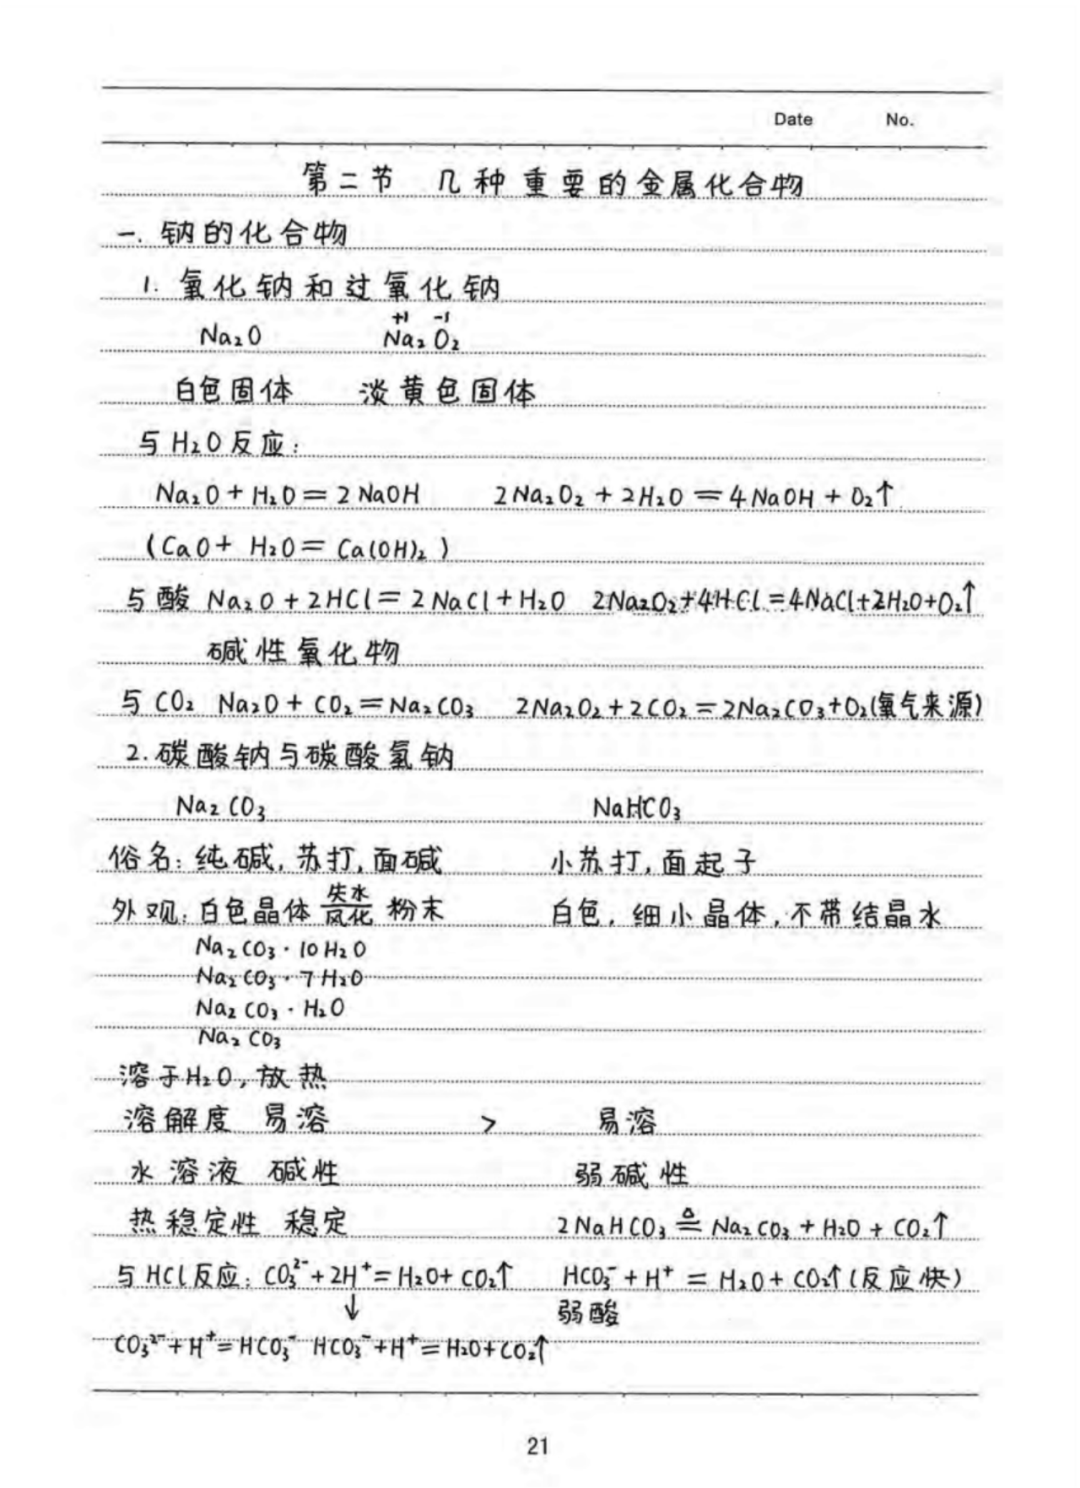 Date No.
第二节 几种重要的金属化合物
一. 钠的化合物
1. 氧化钠和过氧化钠
Na₂O +1 -1 Na₂O₂
白色固体 淡黄色固体
与H₂O反应:
Na₂O + H₂O = 2NaOH 2Na₂O₂ + 2H₂O = 4NaOH + O₂↑
(CaO + H₂O = Ca(OH)₂)
与酸 Na₂O + 2HCl = 2NaCl + H₂O 2Na₂O₂+4HCl=4NaCl+2H₂O+O₂↑
碱性氧化物
与CO₂ Na₂O + CO₂ = Na₂CO₃ 2Na₂O₂+2CO₂=2Na₂CO₃+O₂(氧气来源)
2. 碳酸钠与碳酸氢钠
Na₂CO₃ NaHCO₃
俗名: 纯碱, 苏打, 面碱 小苏打, 面起子
外观: 白色晶体 失水 风化 粉末 白色, 细小晶体, 不带结晶水
Na₂CO₃·10H₂O
Na₂CO₃·7H₂O
Na₂CO₃·H₂O
Na₂CO₃
溶于H₂O, 放热
溶解度 易溶 > 易溶
水溶液 碱性 弱碱性
热稳定性 稳定 2NaHCO₃ ≜ Na₂CO₃ + H₂O + CO₂↑
与HCl反应: CO₃²⁻+2H⁺=H₂O+CO₂↑ HCO₃⁻+H⁺=H₂O+CO₂↑(反应快)
↓ 弱酸
CO₃²⁻+H⁺=HCO₃⁻ HCO₃⁻+H⁺=H₂O+CO₂↑
21